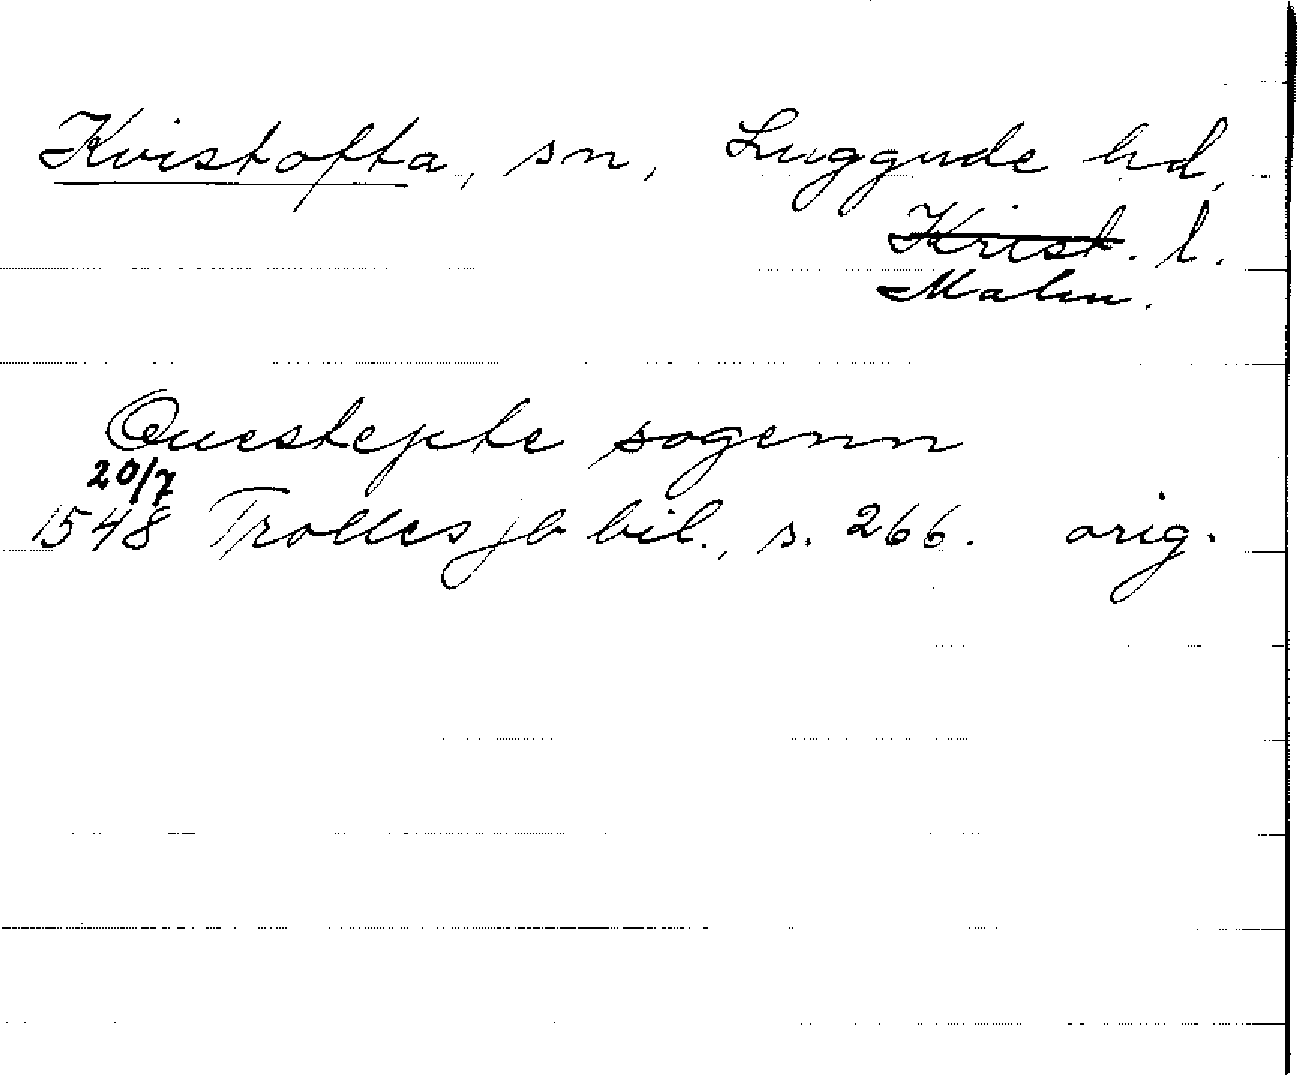 Kvistofta, sn, Luggude hd,
Krist. l.
Malm.
Questepte sogenn
20/7
1548 Trolles jb bil., s. 266. orig.